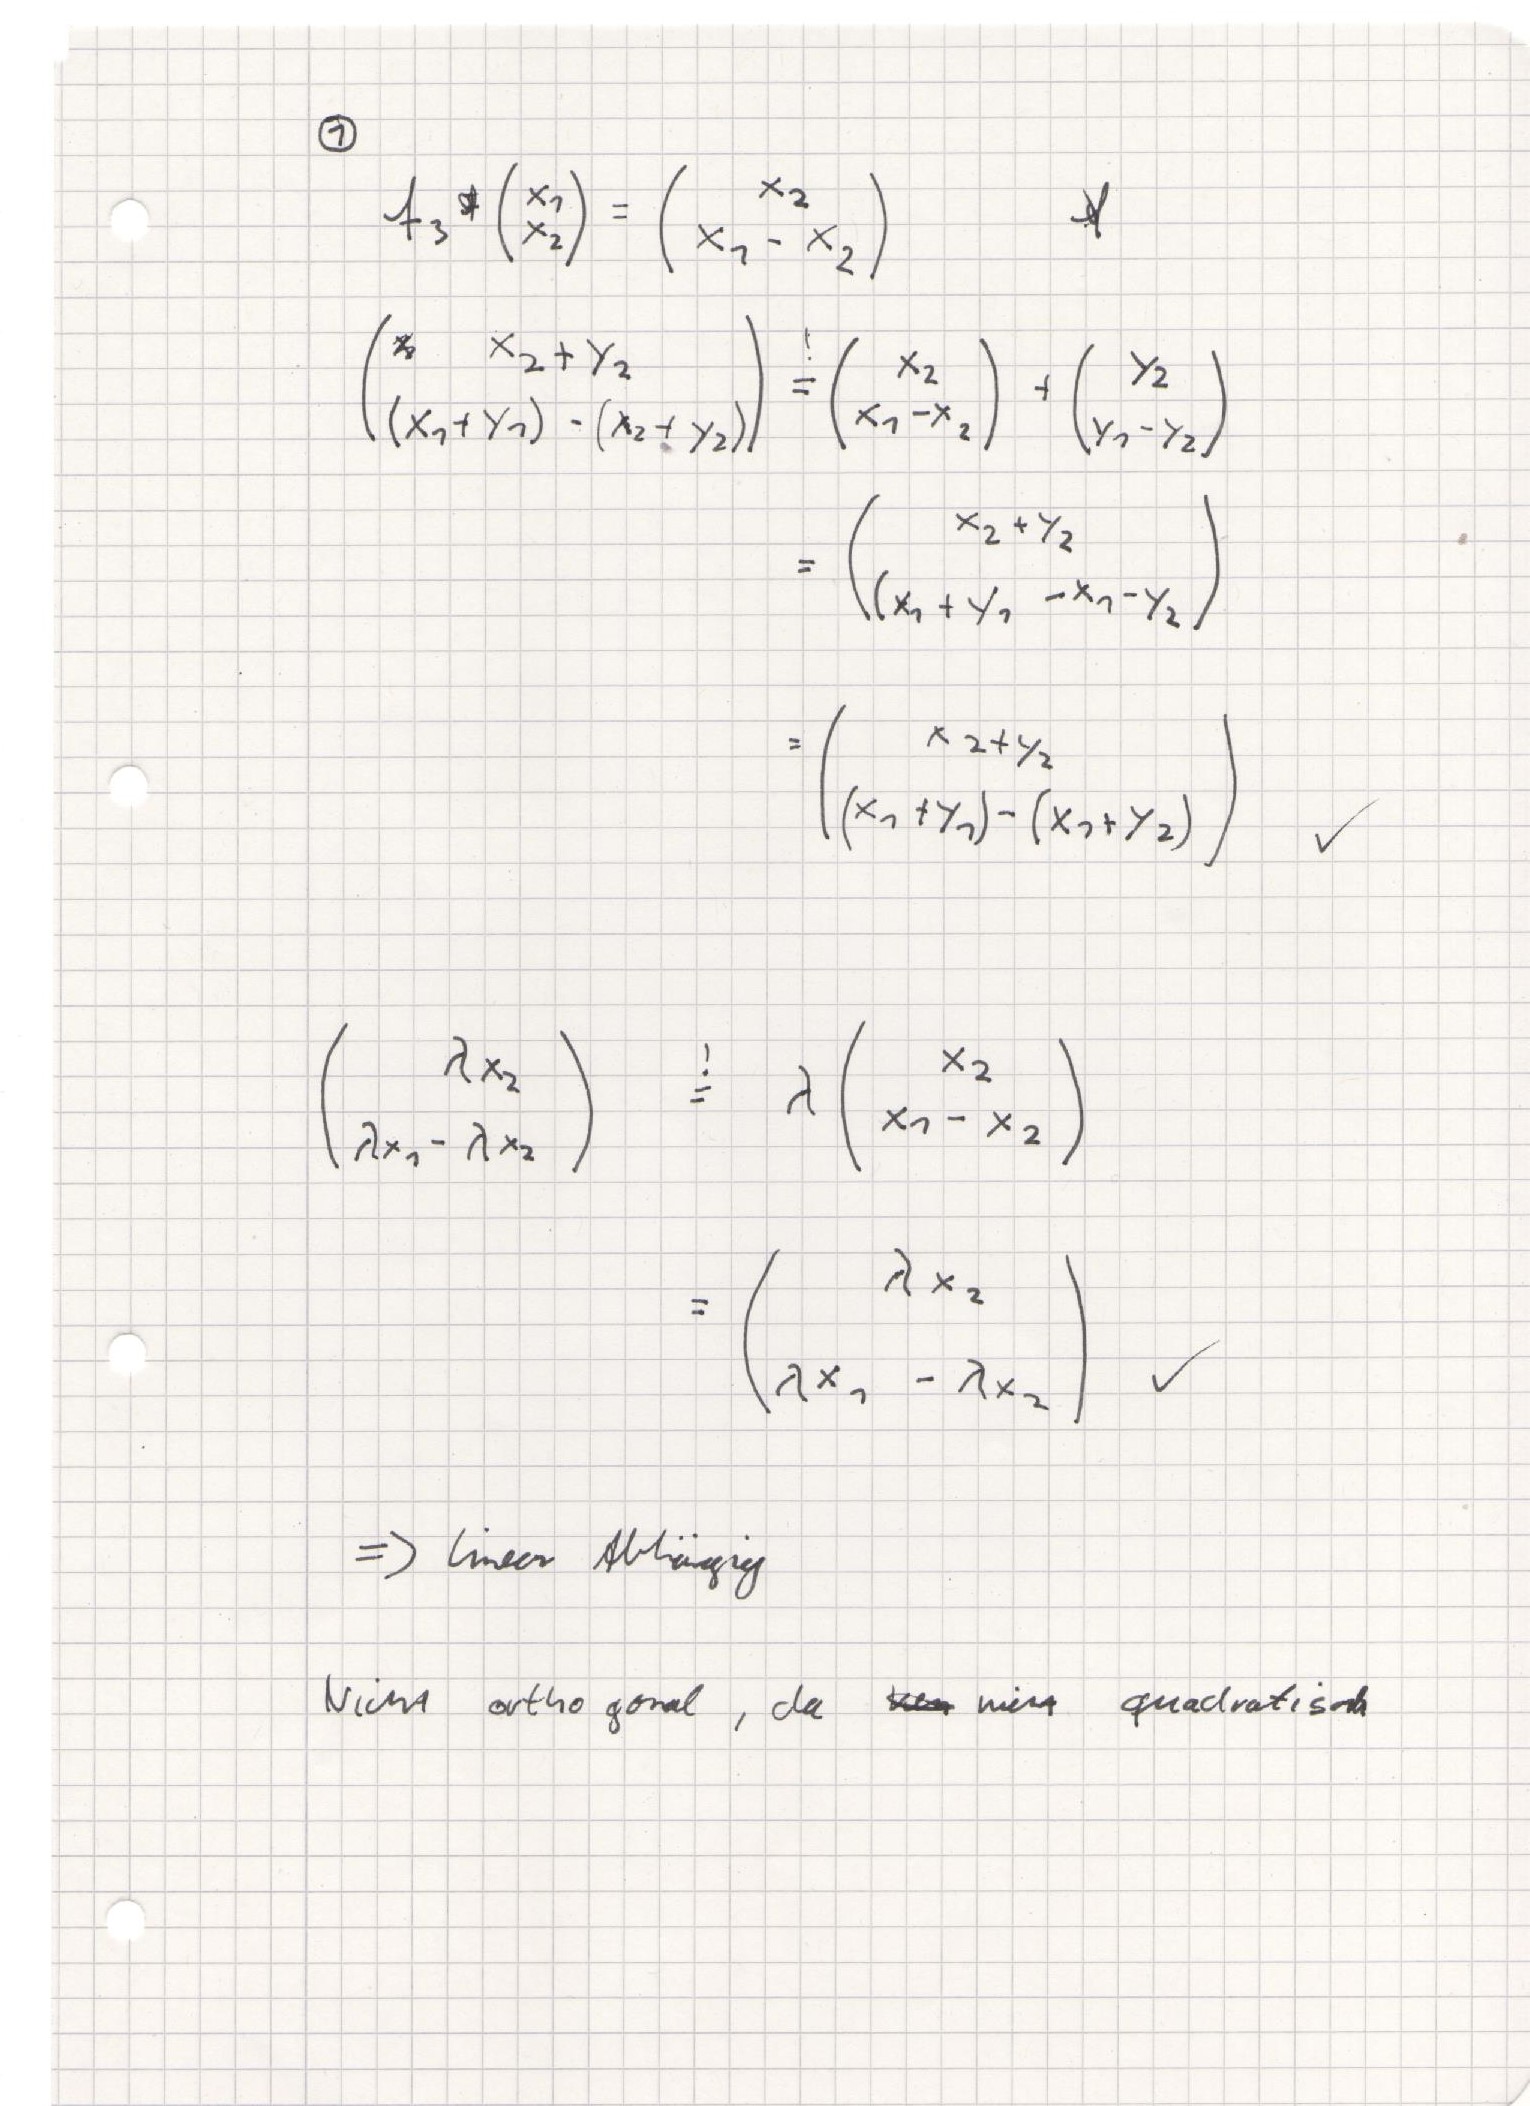 ①
f₃ (x₁ x₂) = (x₂ x₁ - x₂)
(x₂ + y₂ (x₁ + y₁) - (x₂ + y₂)) =! (x₂ x₁ - x₂) + (y₂ y₁ - y₂)
= (x₂ + y₂ (x₁ + y₁ - x₁ - y₂)
= (x₂ + y₂ (x₁ + y₁) - (x₁ + y₂)) ✓
(λx₂ λx₁ - λx₂) =! λ (x₂ x₁ - x₂)
= (λx₂ λx₁ - λx₂) ✓
=> linear Abhängig
Nicht orthogonal, da nicht quadratisch